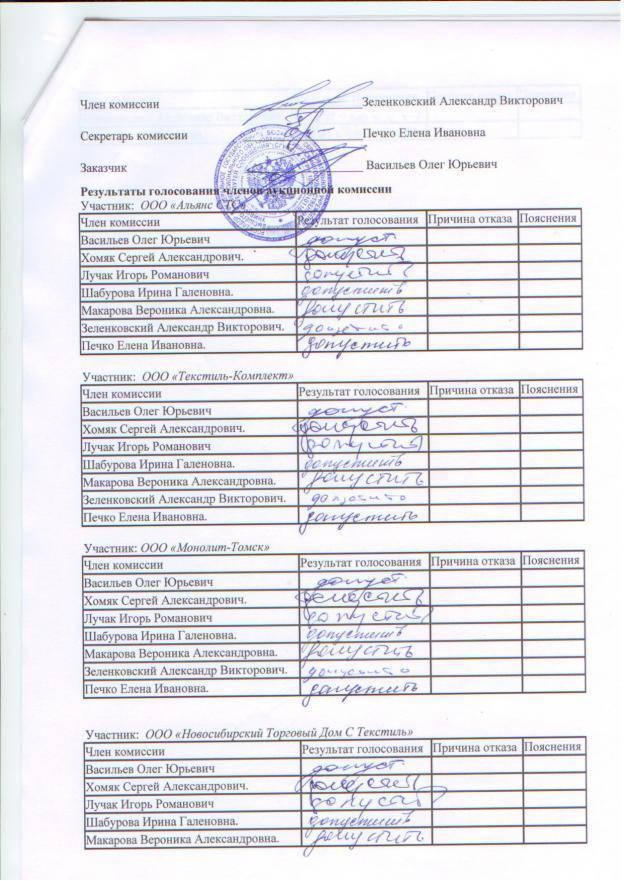 Член комиссии Зеленковский Александр Викторович
Секретарь комиссии Печко Елена Ивановна
Заказчик Васильев Олег Юрьевич
Результаты голосования членов аукционной комиссии
Участник: ООО «Альянс СТС»
Член комиссии Результат голосования Причина отказа Пояснения
Васильев Олег Юрьевич допуст
Хомяк Сергей Александрович. допустить
Лучак Игорь Романович допустить
Шабурова Ирина Галеновна. допустить
Макарова Вероника Александровна. допустить
Зеленковский Александр Викторович. допустить
Печко Елена Ивановна. допустить
Участник: ООО «Текстиль-Комплект»
Член комиссии Результат голосования Причина отказа Пояснения
Васильев Олег Юрьевич допуст.
Хомяк Сергей Александрович. допустить
Лучак Игорь Романович допустить
Шабурова Ирина Галеновна. допустить
Макарова Вероника Александровна. допустить
Зеленковский Александр Викторович. допустить
Печко Елена Ивановна. допустить
Участник: ООО «Монолит-Томск»
Член комиссии Результат голосования Причина отказа Пояснения
Васильев Олег Юрьевич допуст
Хомяк Сергей Александрович. допустить
Лучак Игорь Романович допустить
Шабурова Ирина Галеновна. допустить
Макарова Вероника Александровна. допустить
Зеленковский Александр Викторович. допустить
Печко Елена Ивановна. допустить
Участник: ООО «Новосибирский Торговый Дом С Текстиль»
Член комиссии Результат голосования Причина отказа Пояснения
Васильев Олег Юрьевич допуст.
Хомяк Сергей Александрович. допустить
Лучак Игорь Романович допустить
Шабурова Ирина Галеновна. допустить
Макарова Вероника Александровна. допустить